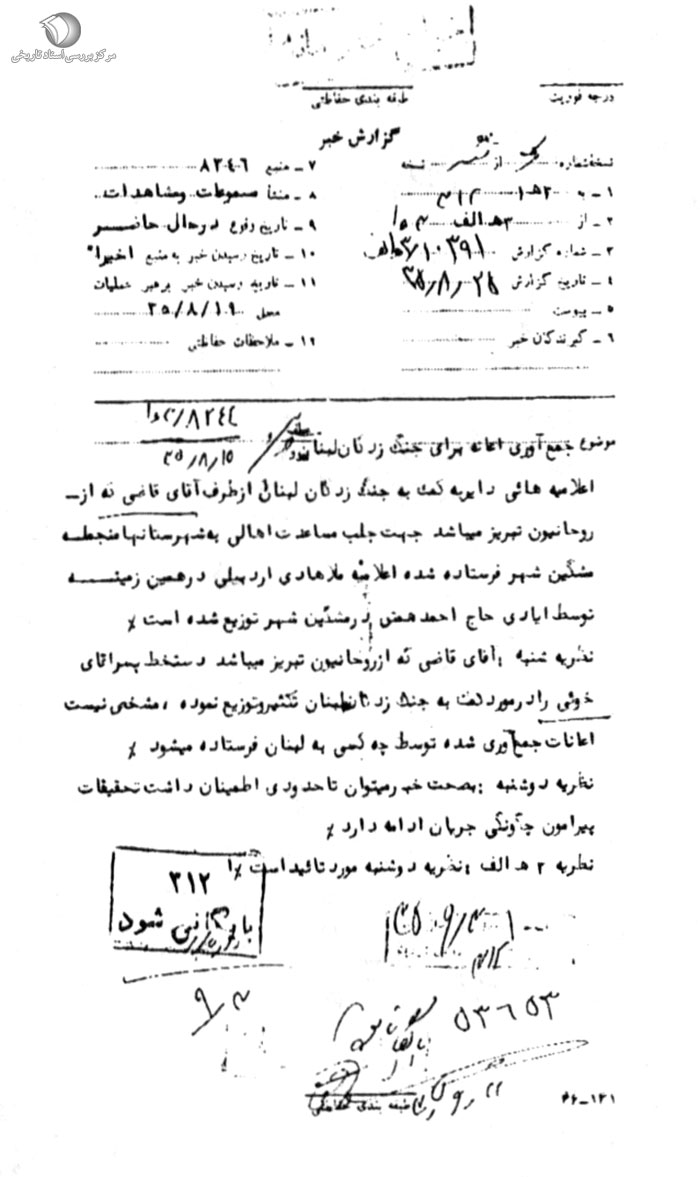 مرکز بررسی اسناد تاریخی
درجه فوریت
طبقه بندی حفاظتی
گزارش خبر
نسخه شماره از نسخه
۷ - منبع ۸۲۴۰۶
۱ - به ۳۱۲
۸ - منشأ مسموعات و مشاهدات
۲ - از ۳ ه الف
۹ - تاریخ وقوع در حال حاضر
۳ - شماره گزارش ۳/۱۰۳۹۱ ه الف
۱۰ - تاریخ رسیدن خبر به منبع اخیراً
۴ - تاریخ گزارش ۳۵/۸/۲۵
۱۱ - تاریخ رسیدن خبر برهبر عملیات
۵ - پیوست
محل ۳۵/۸/۱۹
۶ - گیرندگان خبر
۱۲ - ملاحظات حفاظتی
۳۵/۸/۱۵
موضوع جمع آوری اعانه برای جنگ زدگان لبنان
اعلامیه هائی دایر به کمک به جنگ زدگان لبنان از طرف آقای قاضی که از -
روحانیون تبریز میباشد جهت جلب مساعدت اهالی به شهرستانها منجمله
مشگین شهر فرستاده شده اعلامیه ملاهادی اردبیلی در همین زمینه
توسط ایادی حاج احمد همتی در مشگین شهر توزیع شده است ٪
نظریه شنبه : آقای قاضی که از روحانیون تبریز میباشد دستخط پسر آقای
خوئی را در مورد کمک به جنگ زدگان لبنان تکثیر و توزیع نموده ، مشخص نیست
اعانات جمع آوری شده توسط چه کسی به لبنان فرستاده میشود ٪
نظریه دوشنبه : بصحت خبر میتوان تا حدودی اطمینان داشت تحقیقات
پیرامون چگونگی جریان ادامه دارد ٪
نظریه ۲ ه الف : نظریه دوشنبه مورد تائید است ٪
۳۱۲
بایگانی شود
۳۵/۹/۳
۳۱۲
۹/۳
۵۳۶۵۳
طبقه بندی حفاظتی
۴۶-۱۲۱